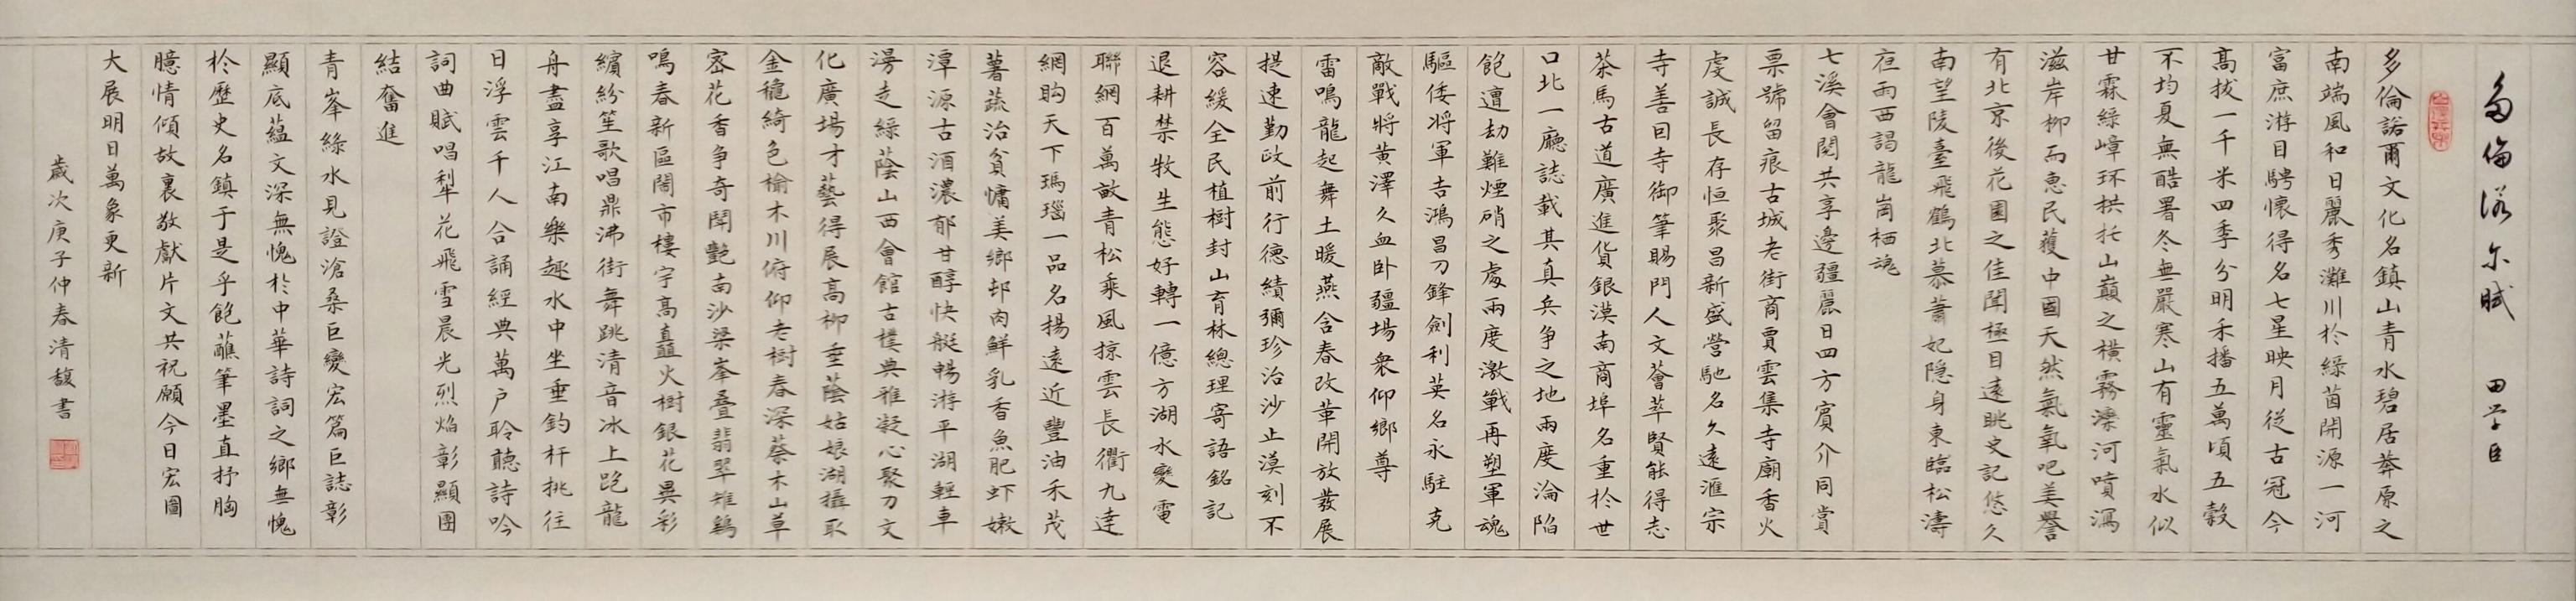 多倫諾尔賦 田学臣
多倫諾爾文化名鎮山青水碧居莽原之
南端風和日麗秀灘川於綠茵開源一河
富庶游目騁懷得名七星映月從古冠今
髙拔一千米四季分明禾播五萬頃五穀
不均夏無酷署冬無嚴寒山有靈氣水似
甘霖綠嶂环拱托山巔之橫霧灤河噴瀉
滋岸柳而惠民蕿中國天然氣氧吧美譽
有北京後花園之佳聞極目遠眺史記悠久
南望陵臺飛鶴北慕蕭妃隱身東臨松濤
夜雨西謁龍崗栖魂
七溪會閱共享邊疆麗日四方賓介同賞
票號留痕古城老街商賈雲集寺廟香火
虔誠長存恒聚昌新盛營馳名久遠滙宗
寺善囙寺御筆賜門人文薈萃賢能得志
茶馬古道廣進貨銀漠南商埠名重於世
口北一廳誌載其真兵争之地兩度淪陷
飽遭劫難煙硝之處兩度激戰再塑軍魂
驅倭将軍吉鴻昌刀鋒劍利英名永駐克
敵戰將黄澤久血卧疆場衆仰鄉尊
雷鳴龍起舞土暖燕含春改革開放發展
提速勤政前行德績彌珍治沙止漠刻不
容緩全民植樹封山育林總理寄語銘記
退耕禁牧生態好轉一億方湖水變電
聯網百萬畝青松乘風掠雲長衢九達
網購天下瑪瑙一品名揚遠近豐油禾茂
薯蔬治貧慵美鄉邨肉鮮乳香魚肥虾嫩
潭源古酒濃郁甘醇快艇暢游平湖輕車
漫走綠蔭山西會館古樸典雅凝心聚力文
化廣場才藝得展高柳垂蔭姑娘湖攝取
金穐綺色榆木川俯仰老樹春深蔡木山草
密花香争奇鬪艷南沙梁峯叠翡翠雉鷄
鳴春新區鬧市樓宇高矗火樹銀花異彩
繽紛笙歌唱鼎沸街舞跳清音冰上跑龍
舟盡享江南樂趣水中坐垂釣杆挑往
日浮雲千人合誦經典萬户聆聽詩吟
詞曲賦唱犁花飛雪晨光烈焰彰顯團
結奮進
青峯綠水見證滄桑巨變宏篇巨誌彰
顯底蘊文深無愧於中華詩詞之鄉無愧
於歷史名鎮于是乎飽蘸筆墨直抒胸
臆情傾故裏敬獻片文共祝願今日宏圖
大展明日萬象更新
歲次庚子仲春清馥書